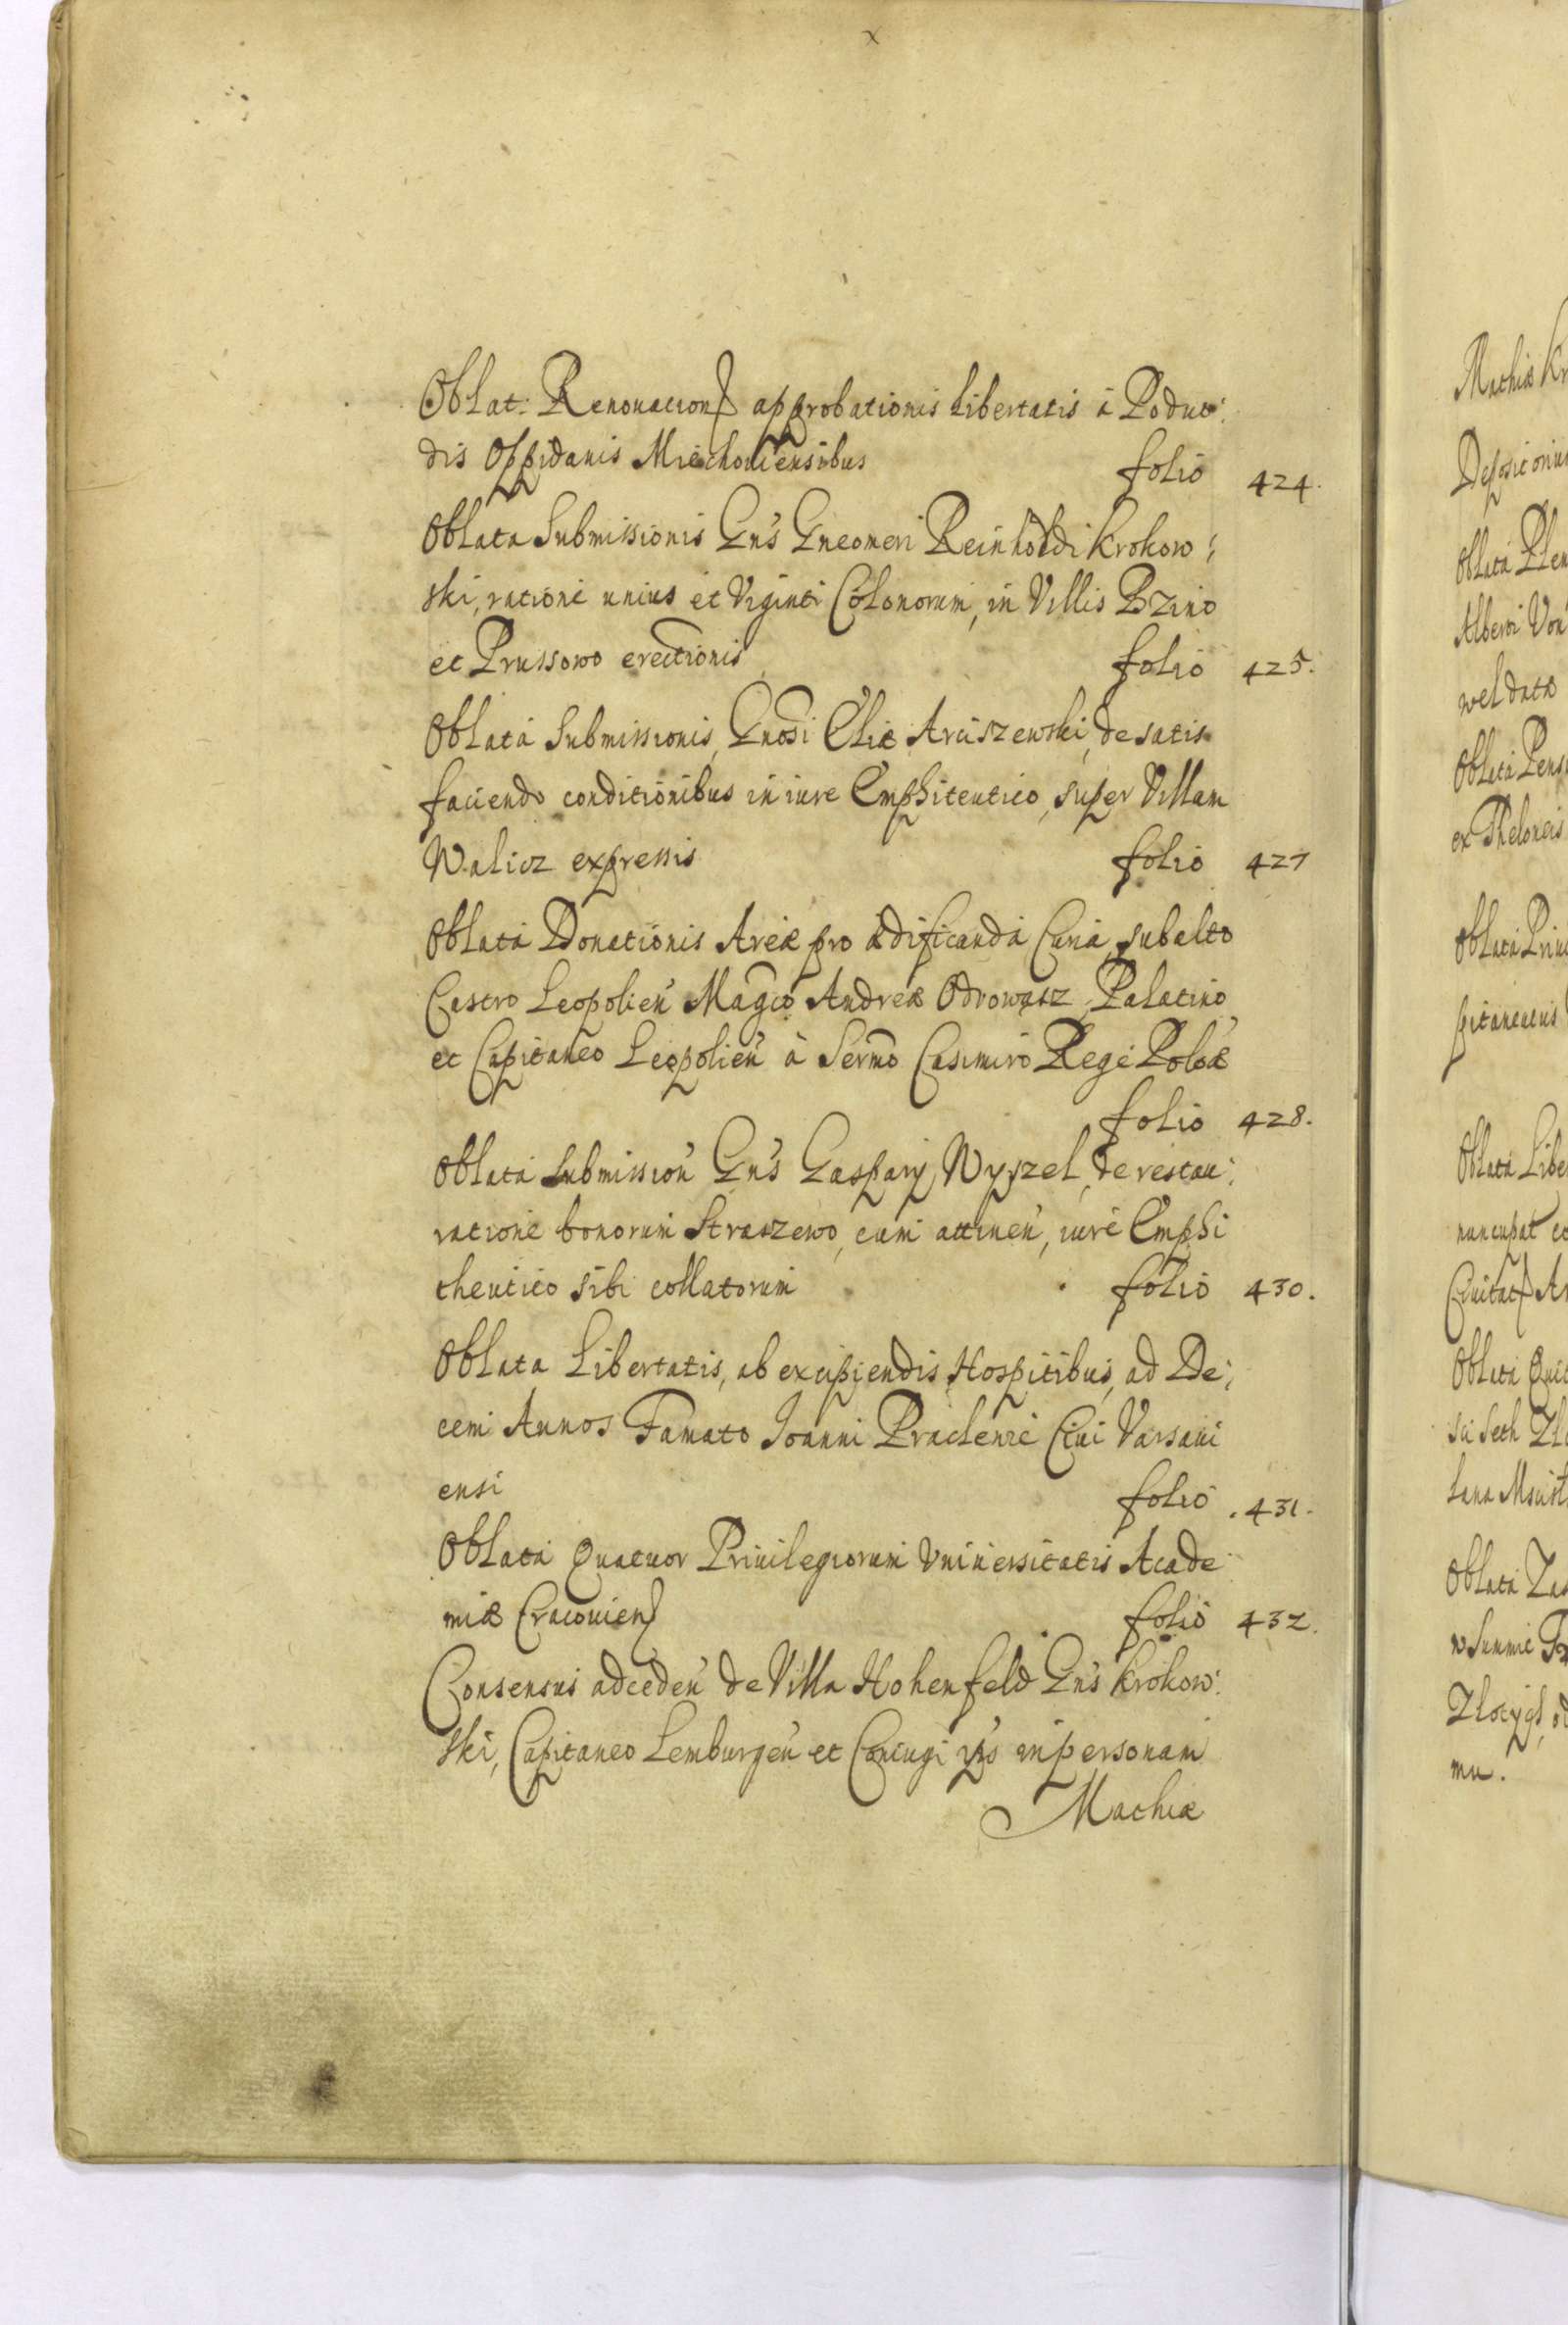 x
Oblat: Renouation approbationis libertatis à Poduo:
dis Oppidanis Miechouiensibus folio 424.
Oblata Submissionis Gn's Gneomeri Reinholdi Krokow:
ski, ratione unius et Viginti Colonorum, in Villis Bzino
et Prussowo erectionis folio 425.
Oblata Submissionis, Gnosi Eliæ Arciszewski, de satis
faciendo conditionibus in iure Emphiteutico, super Villam
Walicz expressis folio 427
Oblata Donationis Areæ pro ædificanda Curia, sub alto
Castro Leopolien' Magco Andreæ Odrowąsz, Palatino
et Capitaneo Leopolien' à Sermo Casimiro Rege Polo'æ
folio 428.
Oblata Submission' Gn's Gasparij Wyszel, de restau:
ratione bonorum Straszewo, cum attinen', iure Emphi
theutico sibi collatorum folio 430.
Oblata Libertatis, ab excipiendis Hospitibus, ad De:
cem Annos Famato Joanni Praclenie Ciui Varsaui
ensi folio 431.
Oblata Quatuor Priuilegiorum Vniuersitatis Acade
miæ Cracouien folio 432.
Consensus ad ceden' de Villa Hohenfeld Gn's Krokow:
ski, Capitaneo Lemburgen' et Coniugi ip's in personam
Mathiæ
Mathiæ Kr
Oblata Plen
Alberti Von
wel datæ
Oblata Pens
ex Theloneis
Oblata Priui
pitaneatus
Oblata Libe
nuncupat et
Ciuitat Ar
Oblata Quit
Oblata Zas
w Summie
Zlotych, od
mu.